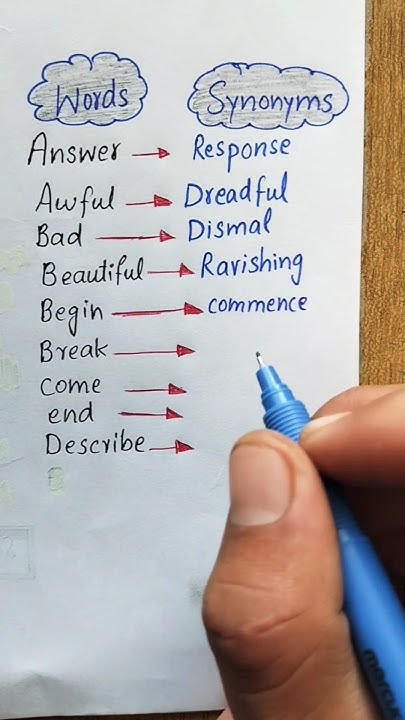 Words Synonyms
Answer → Response
Awful → Dreadful
Bad → Dismal
Beautiful → Ravishing
Begin → commence
Break →
come →
end →
Describe →